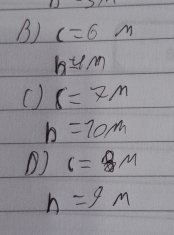 B) c=6 m
h=
C) c=7m
h=10m
D) c=8m
h=9 m